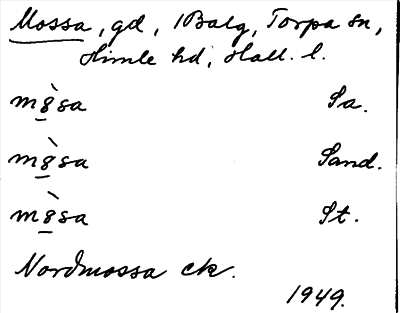 Mossa, gd, 1 Balg, Torpa sn,
Himle hd, Hall. l.
mò̱sa Sa.
mò̱sa Sand.
mò̱sa St.
Nordmossa ck.
1949.